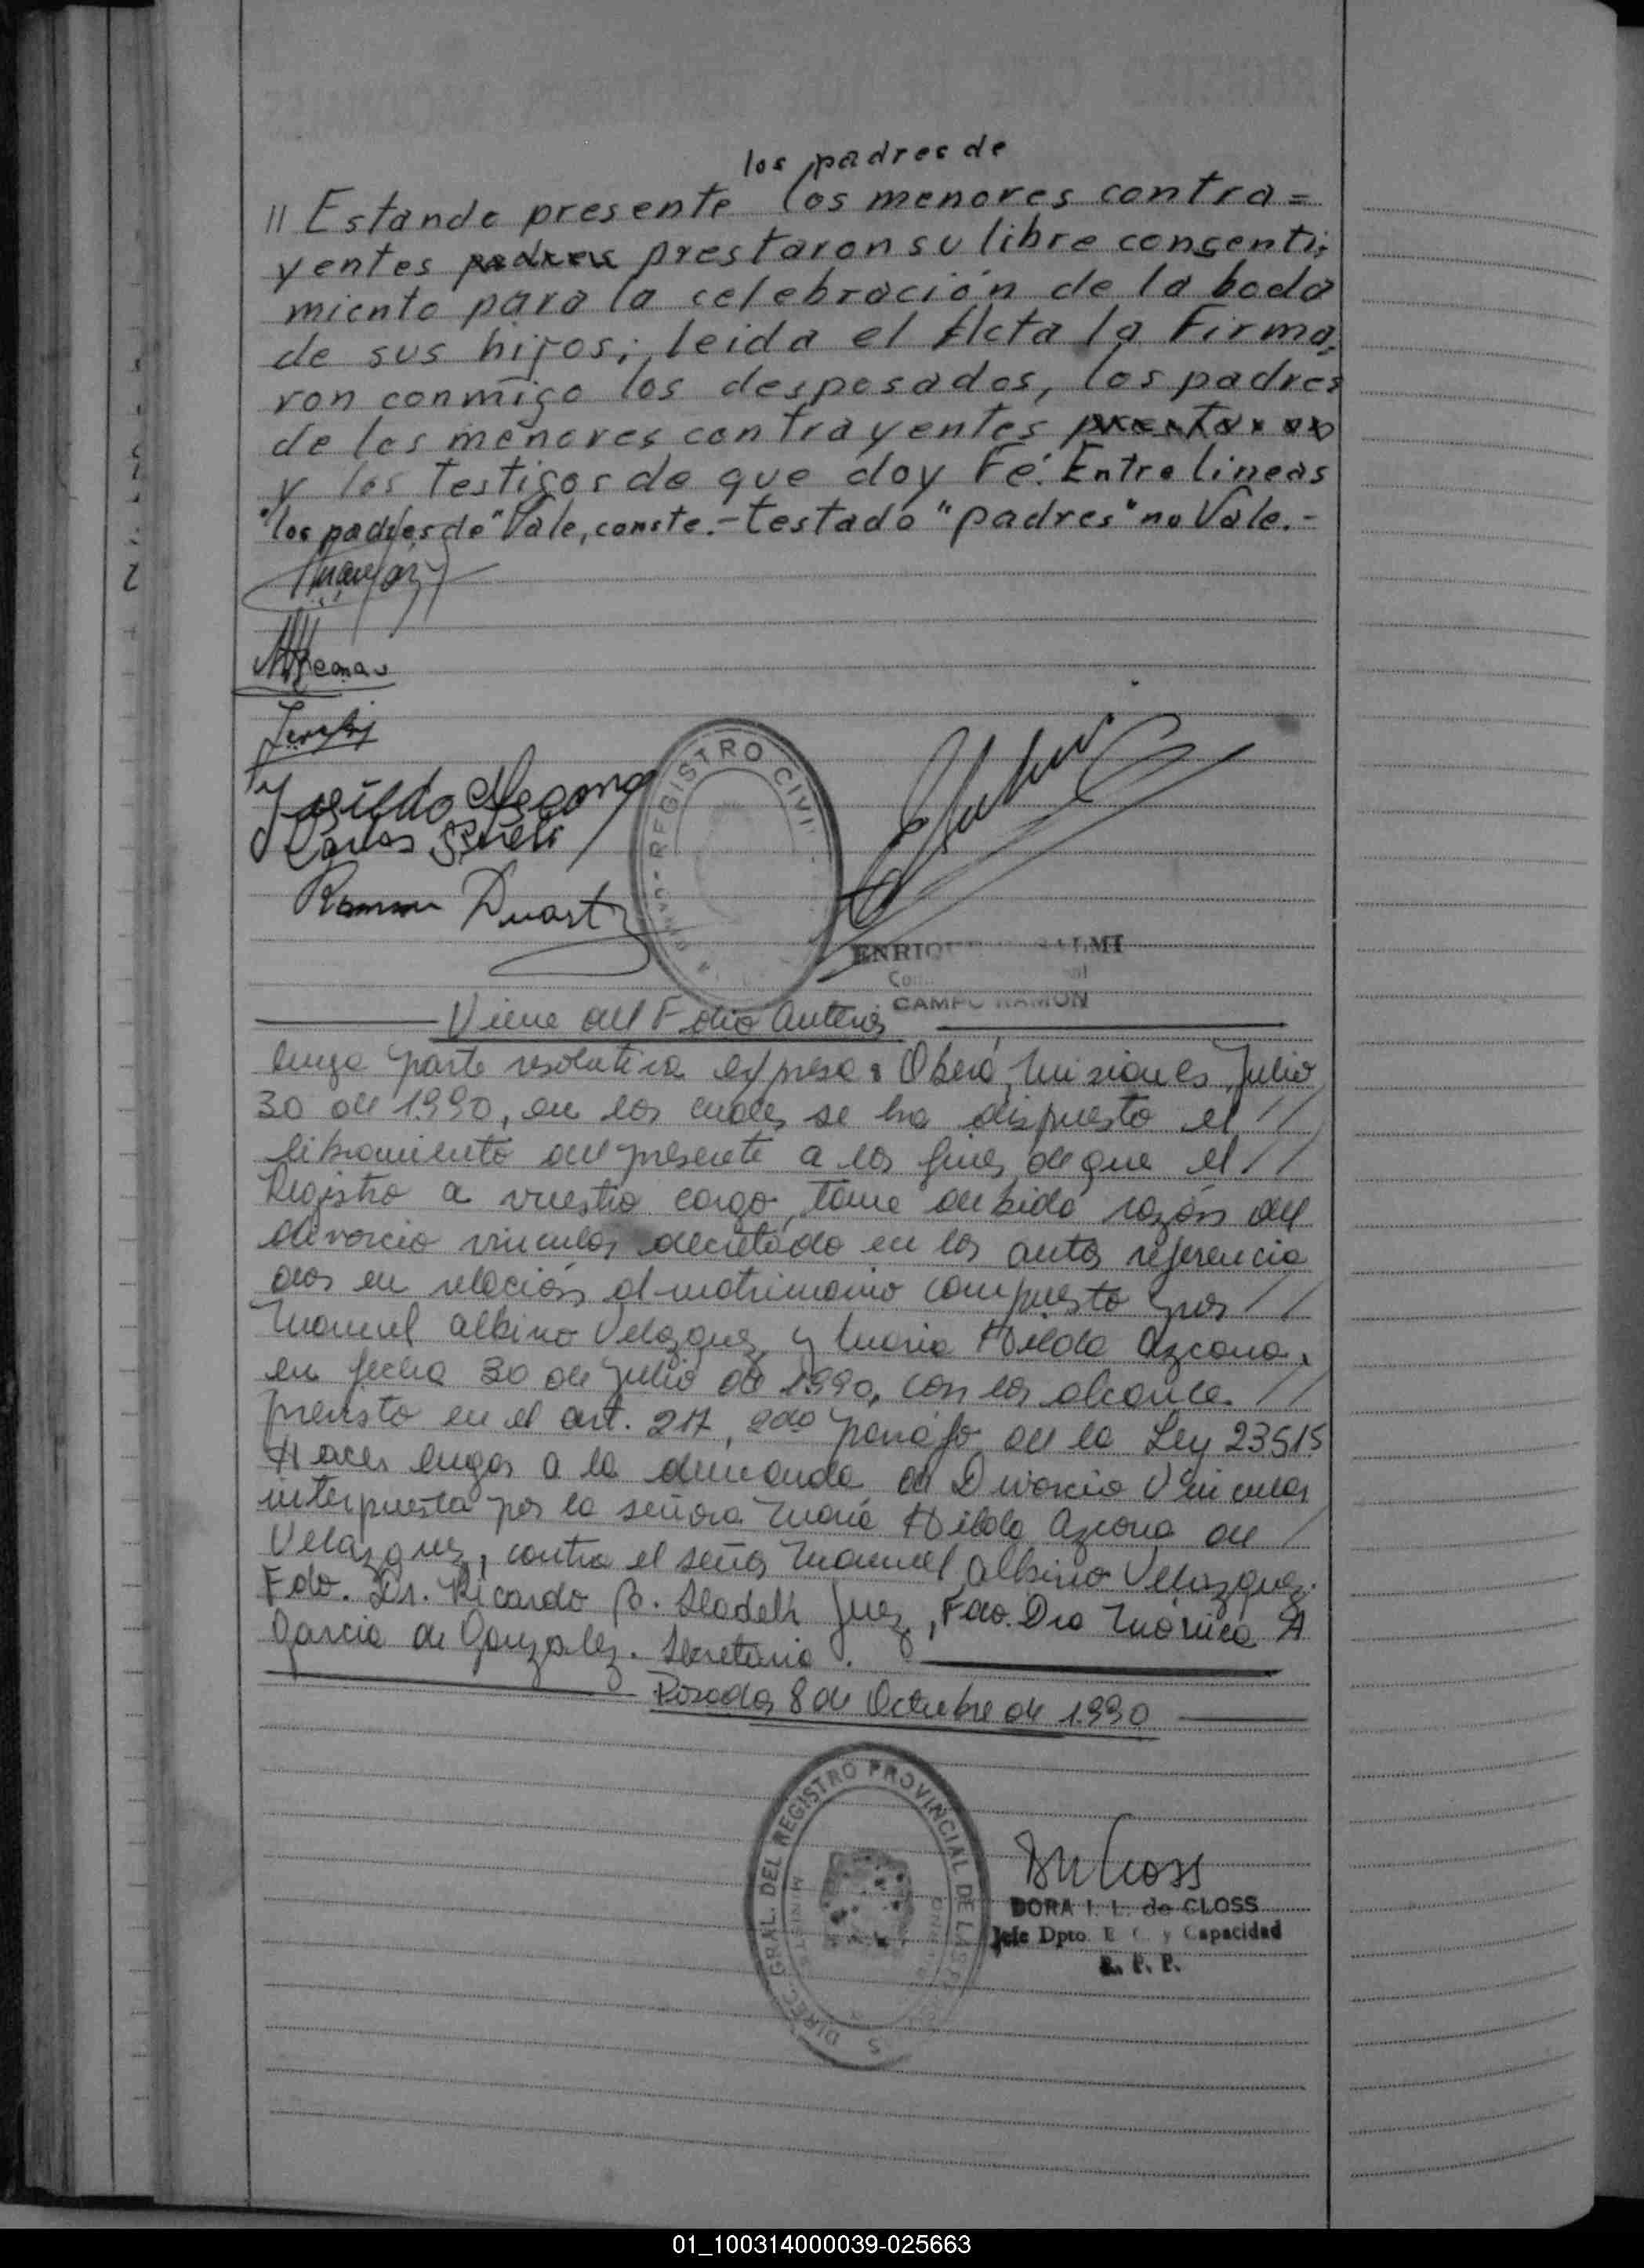 los padres de
// Estando presente los menores contra=
yentes padres prestaron su libre consenti=
miento para la celebración de la boda
de sus hijos; leida el Acta la Firma=
ron conmigo los desposados, los padres
de los menores contrayentes
y los testigos de que doy Fé. Entre lineas
"los padres de" Vale, conste.- testado "padres" no Vale.-
Carlos
Ramon Duarte
REGISTRO CIVIL
CAMPO RAMON
Viene del Folio Anterior
cuya parte resolutiva expresa: Oberá, Misiones, Julio
30 de 1.990, en los cuales se ha dispuesto el //
libramiento del presente a los fines de que el //
Registro a vuestro cargo, tome debida razón del
divorcio vincular decretado en los autos referencia
dos en relación al matrimonio compuesto por //
Manuel Albino Velazquez y Maria Hilda Azcona,
en fecha 30 de Julio de 1990, con los alcance //
previsto en el art. 217, 2do parrafo de la Ley 23515
Hacer lugar a la demanda de Divorcio Vincular
interpuesta por la señora Maria Hilda Azcona de /
Velazquez, contra el señor Manuel Albino Velazquez.
Fdo. Dr. Ricardo B. Juez, Fdo. Dra Mónica A
Garcia de Gonzalez. Secretaria.
Posadas 8 de Octubre de 1.990
DIREC. GRAL. DEL REGISTRO PROVINCIAL DE LAS
DORA I. L. de CLOSS
Jefe Dpto. E. C. y Capacidad
R. P. P.
01_100314000039-025663